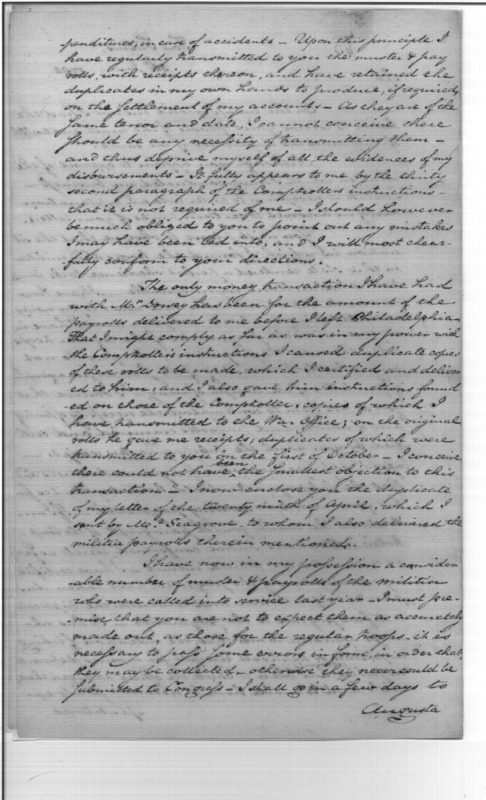 penditures, in case of accidents — Upon this principle I
have regularly transmitted to you the muster & pay
rolls, with receipts thereon, and have retained the
duplicates in my own hands to produce, if required,
on the settlement of my accounts — As they are of the
same tenor and date, I cannot conceive there
should be any necessity of transmitting them —
and thus deprive myself of all the evidences of my
disbursements — It fully appears to me by the thirty
second paragraph of the Comptrollers instructions —
that it is not required of me — I should however
be much obliged to you to point out any mistakes
I may have been led into, and I will most chear-
fully conform to your directions.
The only money transaction I have had
with Mr. has been for the amount of the
payrolls delivered to me before I left Philadelphia
That I might comply as far as was in my power with
the Comptrollers instructions I caused duplicate copies
of these rolls to be made, which I certified and deliver
ed to him; and I also gave him instructions found
-ed on those of the Comptroller, copies of which I
have transmitted to the War Office; on the original
rolls he gave me receipts; duplicates of which were
transmitted to you on the first of October — I conceive
there could not have been the smallest objection to this
transaction — I now enclose you the duplicate
of my letter of the twenty ninth of April, which I
sent by Mr. Seagrove, to whom I also delivered the
militia payrolls therein mentioned.
I have now in my possession a consider
able number of muster & payrolls of the militia
who were called into service last year — I must pre-
-mise, that you are not to expect them as accurately
made out, as those for the regular troops — it is
necessary to pass some errors in form, in order that
they may be collected — otherwise they never could be
submitted to Congress — I shall go in a few days to
Augusta